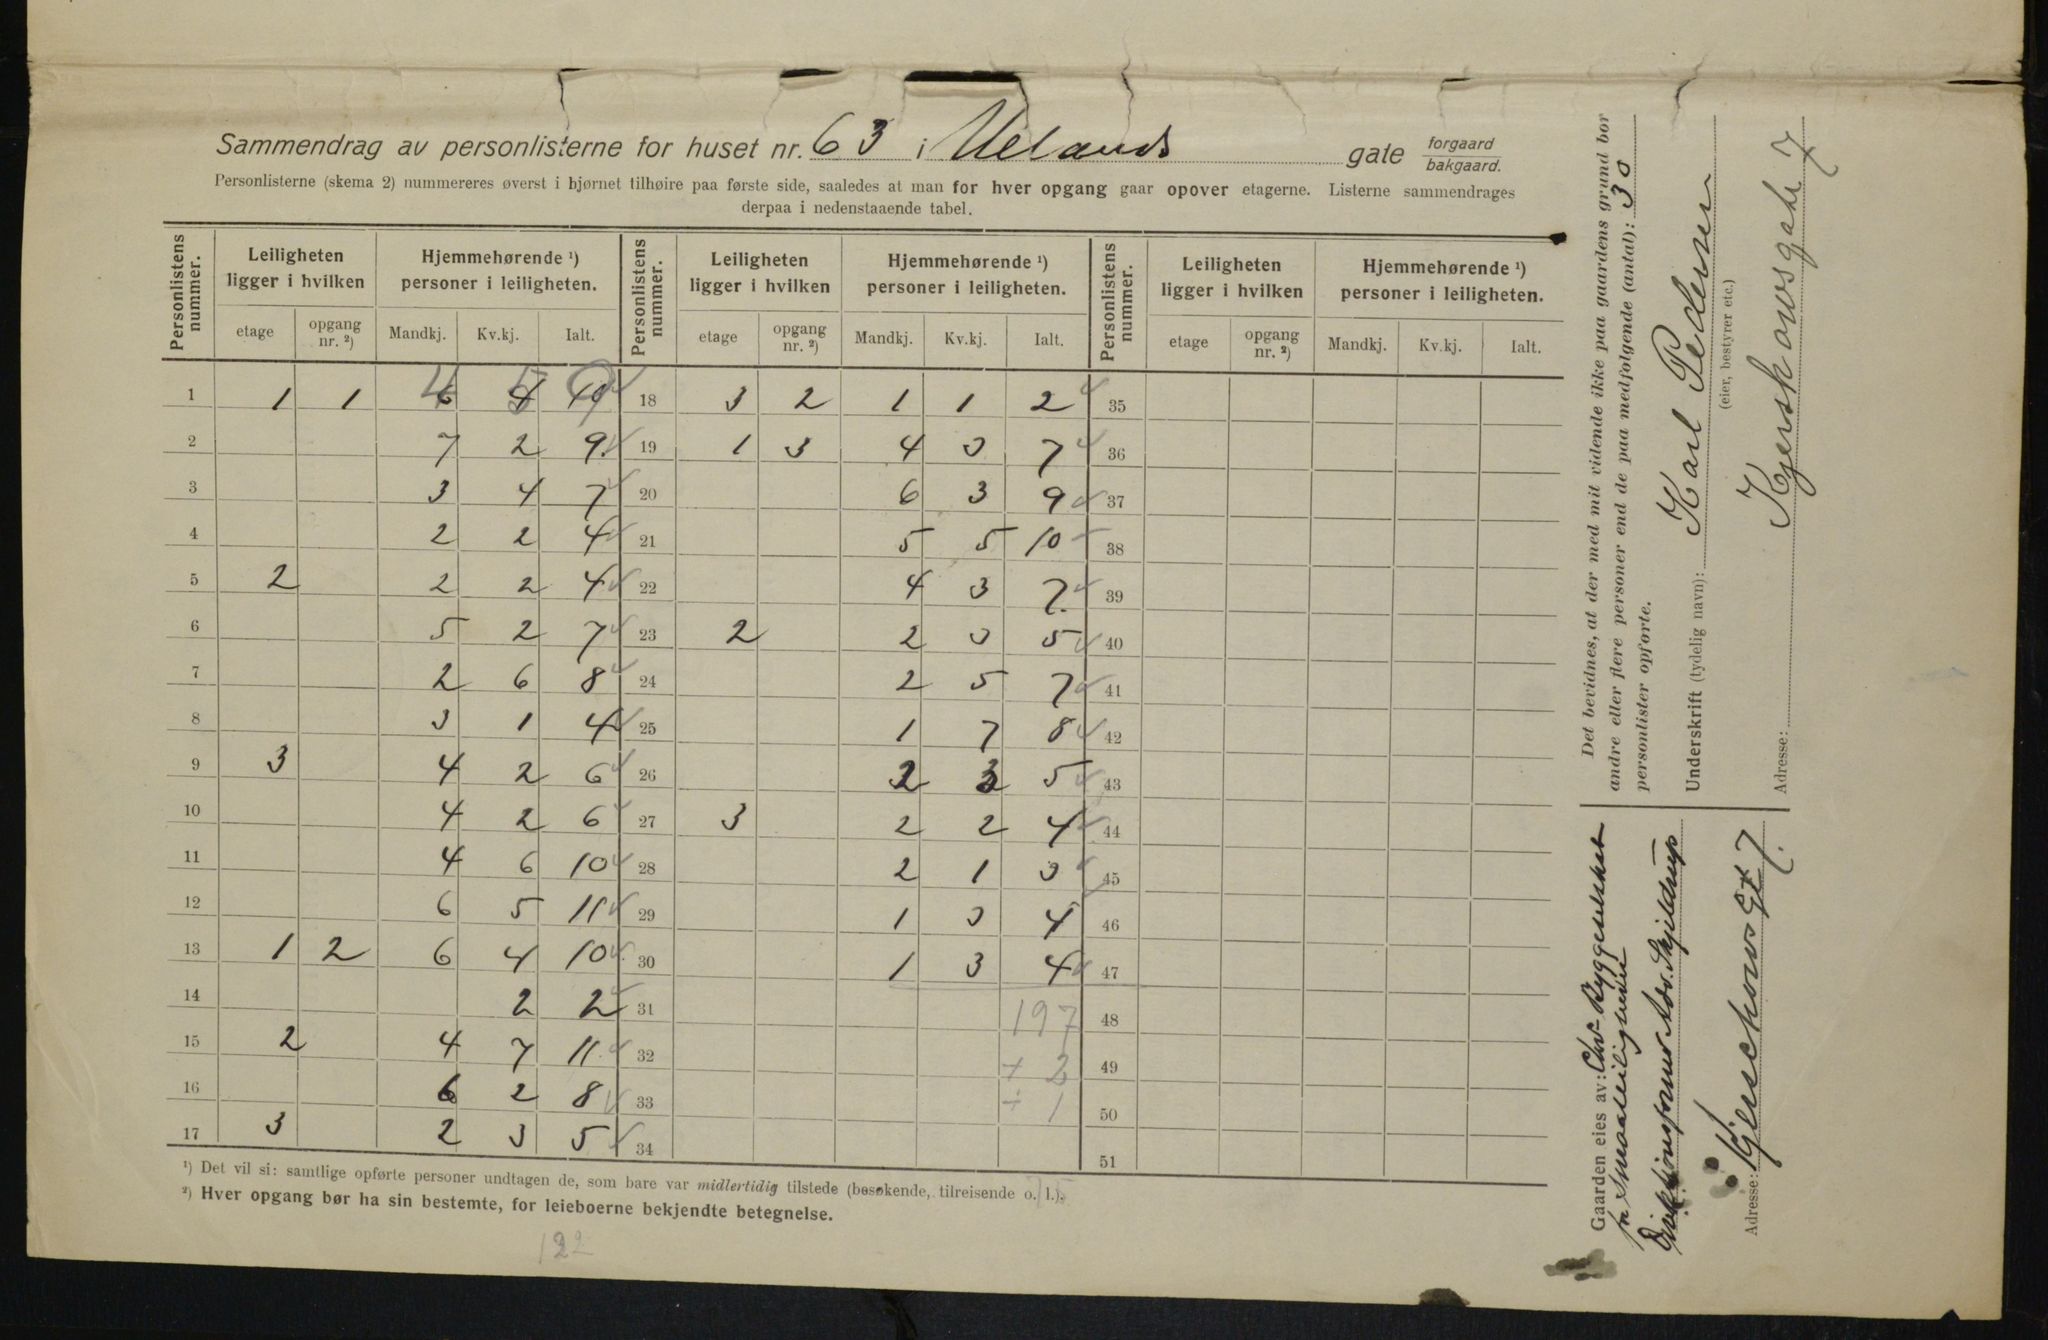 Sammendrag av personlisterne for huset nr. 63 i Uelands gate forgaard bakgaard.
Personlisterne (skema 2) nummereres øverst i hjørnet tilhøire paa første side, saaledes at man for hver opgang gaar opover etagerne. Listerne sammendrages
derpaa i nedenstaaende tabel.
Personlistens nummer. Leiligheten ligger i hvilken Hjemmehørende ¹) personer i leiligheten. Personlistens nummer. Leiligheten ligger i hvilken Hjemmehørende ¹) personer i leiligheten. Personlistens nummer. Leiligheten ligger i hvilken Hjemmehørende ¹) personer i leiligheten.
etage opgang nr. ²) Mandkj. Kv.kj. Ialt. etage opgang nr. ²) Mandkj. Kv.kj. Ialt. etage opgang nr. ²) Mandkj. Kv.kj. Ialt.
1 1 1 4 5 9 18 3 2 1 1 2 35
2 7 2 9 19 1 3 4 3 7 36
3 3 4 7 20 6 3 9 37
4 2 2 4 21 5 5 10 38
5 2 2 2 4 22 4 3 7. 39
6 5 2 7 23 2 2 3 5 40
7 2 6 8 24 2 5 7 41
8 3 1 4 25 1 7 8 42
9 3 4 2 6 26 2 3 5 43
10 4 2 6 27 3 2 2 4 44
11 4 6 10 28 2 1 3 45
12 6 5 11 29 1 3 4 46
13 1 2 6 4 10 30 1 3 4 47
14 2 2 31 197 48
15 2 4 7 11 32 + 2 49
16 6 2 8 33 ÷ 1 50
17 3 2 3 5 34 51
¹) Det vil si: samtlige opførte personer undtagen de, som bare var midlertidig tilstede (besøkende, tilreisende o. l.).
²) Hver opgang bør ha sin bestemte, for leieboerne bekjendte betegnelse.
75
122
Det bevidnes, at der med mit vidende ikke paa gaardens grund bor
andre eller flere personer end de paa medfølgende (antal): 30
personlister opførte.
Underskrift (tydelig navn): Karl Pedersen
(eier, bestyrer etc.)
Adresse: Kjerskowsgate 7
Gaarden eies av: Chr. Byggeselskab
for smaaleiligheter
Adv. Skjeldrup
Adresse: Kjerschowsgt 7.